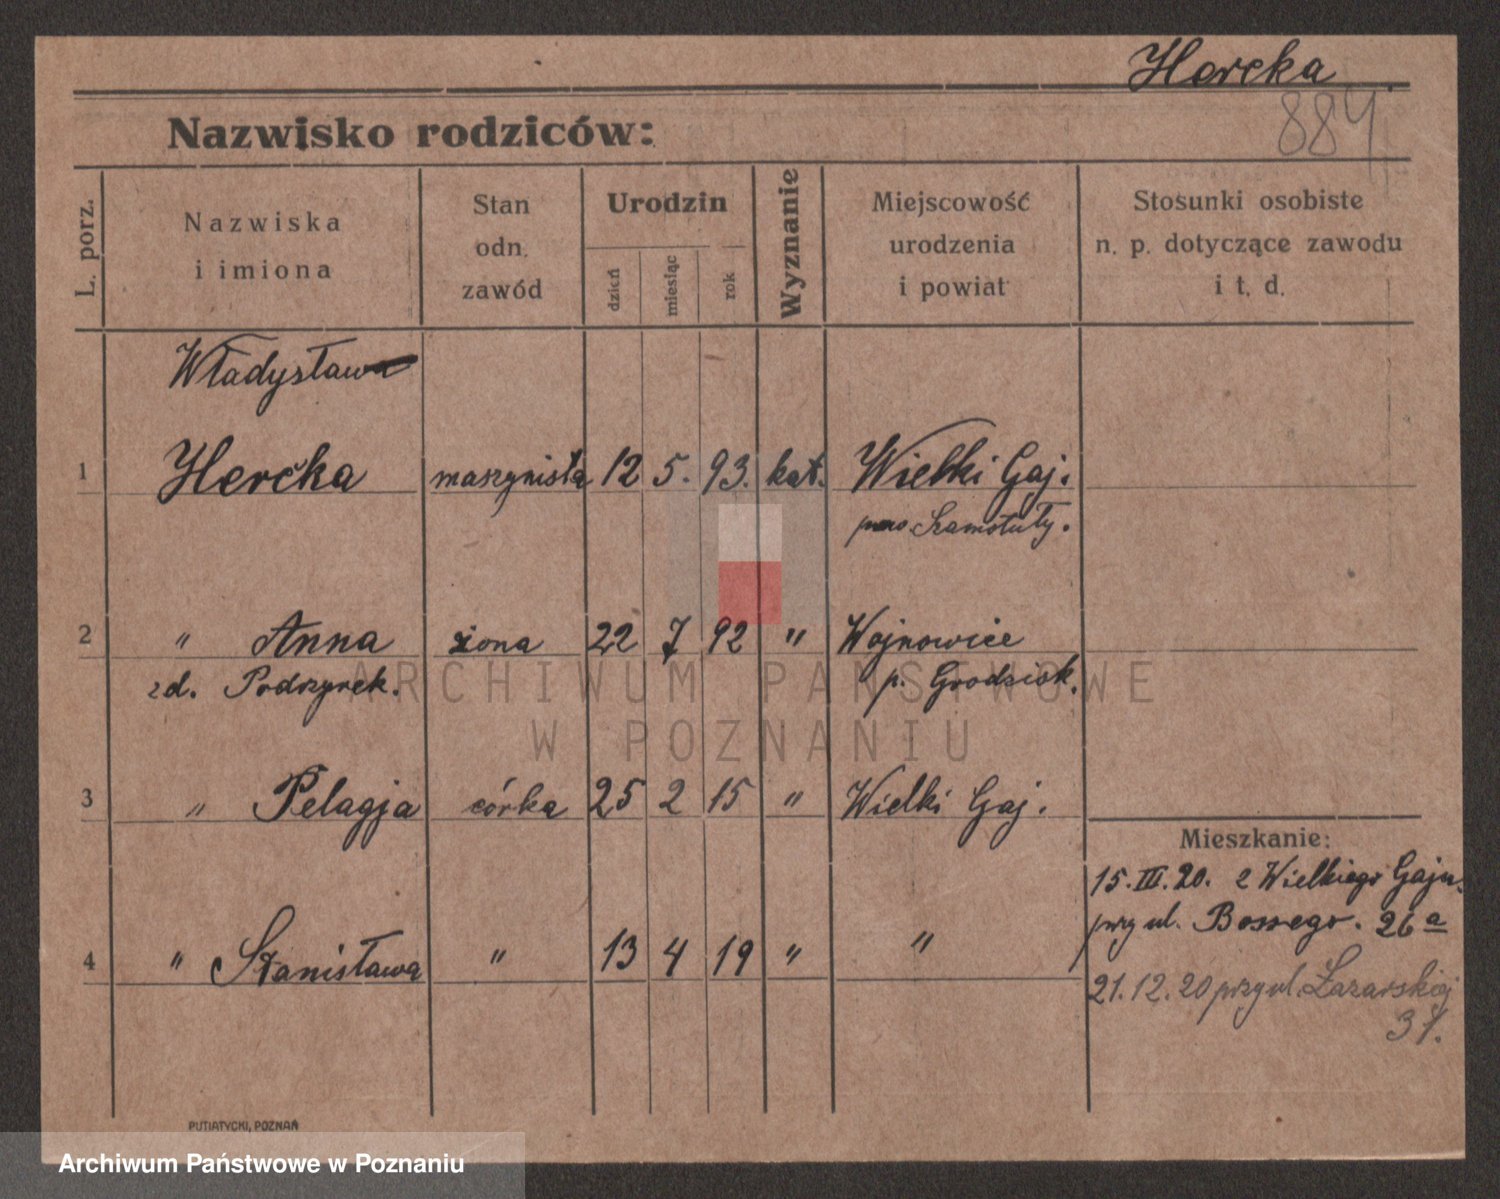 Hercka
884
Nazwisko rodziców:
L. porz.
Nazwiska
i imiona
Stan
odn.
zawód
Urodzin
dzień
miesiąc
rok
Wyznanie
Miejscowość
urodzenia
i powiat
Stosunki osobiste
n. p. dotyczące zawodu
i t. d.
Władysław
1 Hercka maszynista 12 5. 93. kat. Wielki Gaj.
Szamotuły.
2 " Anna żona 22 7 92 " Wojnowice
zd. Podrzycek. p. Grodzisk.
3 " Pelagja córka 25 2 15 " Wielki Gaj.
Mieszkanie:
15.III.20. z Wielkiego Gaju.
przy ul. Bossego. 26a
4 " Stanisława " 13 4 19 " "
21.12.20 przy ul. Łazarskiej
31.
PUTIATYCKI, POZNAŃ
ARCHIWUM PAŃSTWOWE
W POZNANIU
Archiwum Państwowe w Poznaniu